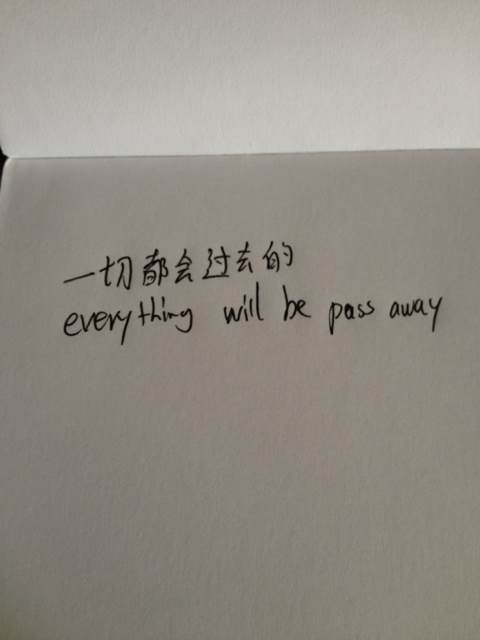 一切都会过去的
everything will be pass away